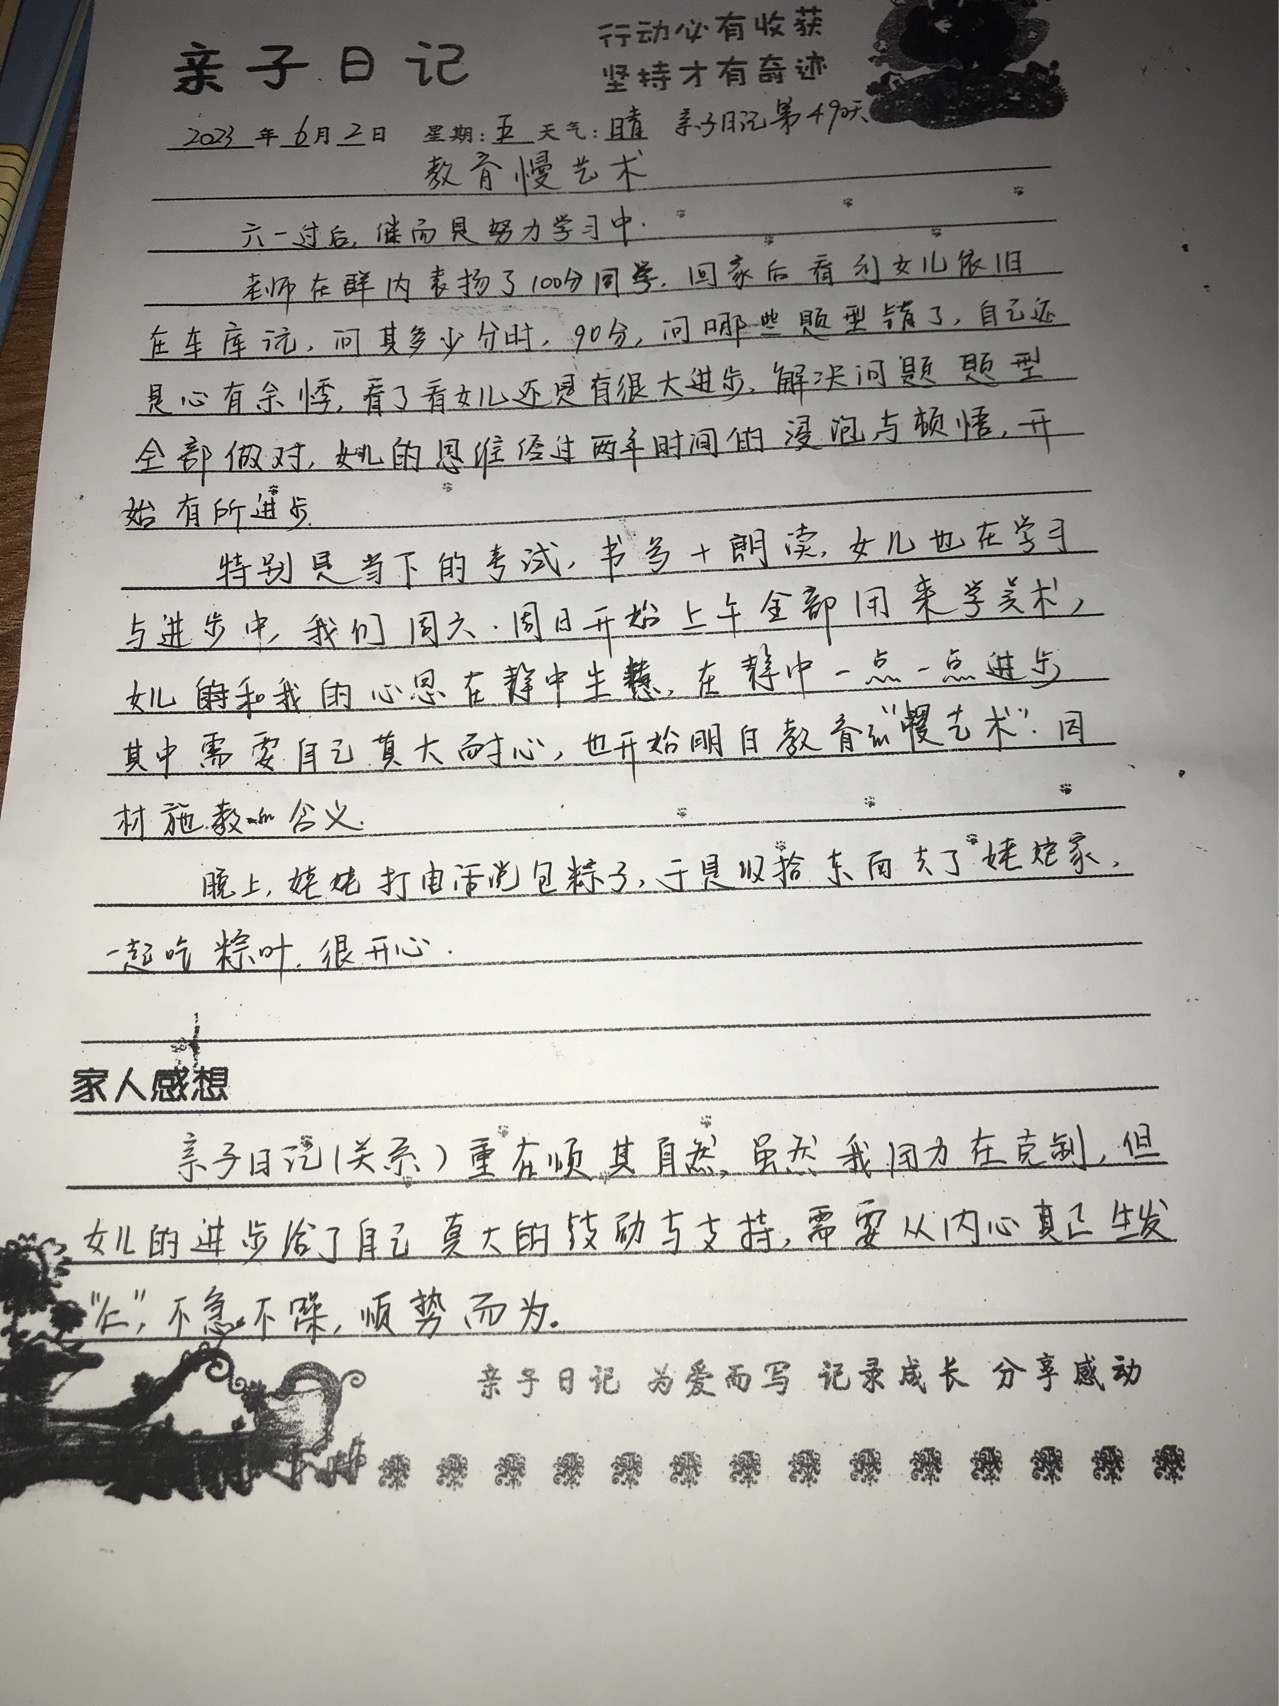 亲子日记
行动必有收获
坚持才有奇迹
2023年6月2日 星期:五 天气:晴 亲子日记第490天
教育慢艺术
六一过后，继而是努力学习中.
老师在群内表扬了100分同学.回家后看到女儿依旧
在车库玩，问其多少分时，90分，问哪些题型错了，自己还
是心有余悸，看了看女儿还是有很大进步.解决问题题型
全部做对，女儿的思维经过两年时间的浸泡与顿悟，开
始有所进步.
特别是当下的考试，书多+朗读，女儿也在学习
与进步中，我们周六.周日开始上午全部用来学美术，
女儿的和我的心思在静中生慧，在静中一点一点进步
其中需要自己莫大耐心，也开始明白教育的“慢艺术”.因
材施教的含义.
晚上，姥姥打电话说包粽子，于是收拾东西去了姥姥家，
一起吃粽叶.很开心.
家人感想
亲子日记(关系)重在顺其自然，虽然我用力在克制，但
女儿的进步给了自己莫大的鼓励与支持，需要从内心真正生发
“仁”，不急不噪，顺势而为。
亲子日记 为爱而写 记录成长 分享感动